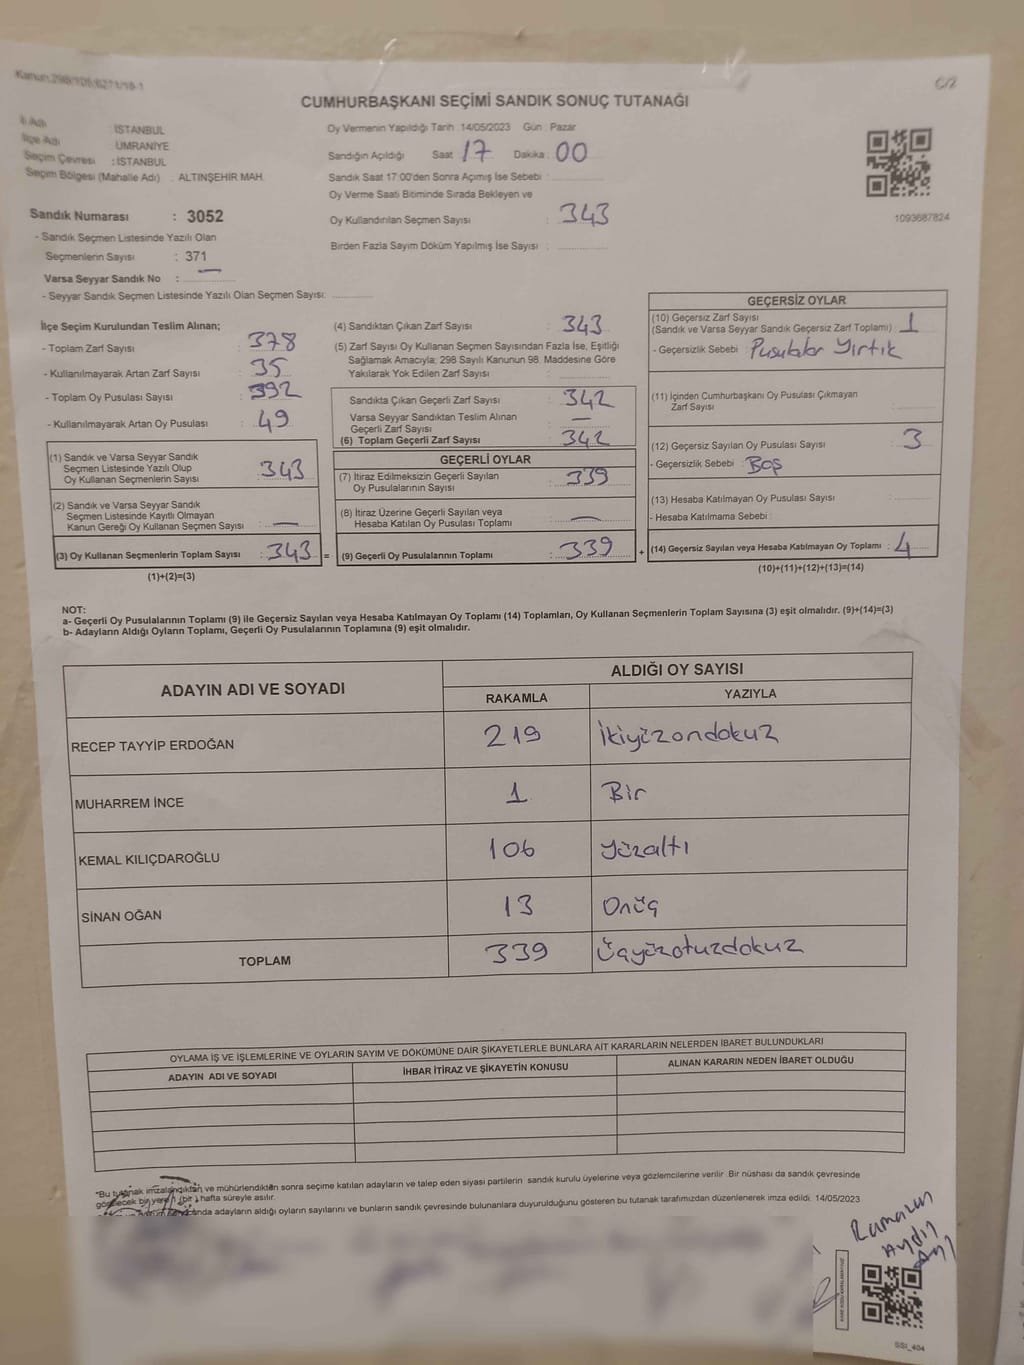 Kanun:298/105/6271/18-1
C/2
CUMHURBAŞKANI SEÇİMİ SANDIK SONUÇ TUTANAĞI
İl Adı : İSTANBUL
İlçe Adı : ÜMRANİYE
Seçim Çevresi : İSTANBUL
Seçim Bölgesi (Mahalle Adı) : ALTINŞEHİR MAH.
Sandık Numarası : 3052
- Sandık Seçmen Listesinde Yazılı Olan
Seçmenlerin Sayısı : 371
Varsa Seyyar Sandık No : —
- Seyyar Sandık Seçmen Listesinde Yazılı Olan Seçmen Sayısı:
Oy Vermenin Yapıldığı Tarih :14/05/2023 Gün : Pazar
Sandığın Açıldığı Saat : 17 Dakika : 00
Sandık Saat 17:00'den Sonra Açımış İse Sebebi :
Oy Verme Saati Bitiminde Sırada Bekleyen ve
Oy Kullandırılan Seçmen Sayısı : 343
Birden Fazla Sayım Döküm Yapılmış İse Sayısı :
1093687824
İlçe Seçim Kurulundan Teslim Alınan;
- Toplam Zarf Sayısı : 378
- Kullanılmayarak Artan Zarf Sayısı : 35
- Toplam Oy Pusulası Sayısı : 392
- Kullanılmayarak Artan Oy Pusulası : 49
(1) Sandık ve Varsa Seyyar Sandık
Seçmen Listesinde Yazılı Olup
Oy Kullanan Seçmenlerin Sayısı : 343
(2) Sandık ve Varsa Seyyar Sandık
Seçmen Listesinde Kayıtlı Olmayan
Kanun Gereği Oy Kullanan Seçmen Sayısı : —
(3) Oy Kullanan Seçmenlerin Toplam Sayısı : 343 =
(1)+(2)=(3)
(4) Sandıktan Çıkan Zarf Sayısı : 343
(5) Zarf Sayısı Oy Kullanan Seçmen Sayısından Fazla İse, Eşitliği
Sağlamak Amacıyla; 298 Sayılı Kanunun 98. Maddesine Göre
Yakılarak Yok Edilen Zarf Sayısı :
Sandıkta Çıkan Geçerli Zarf Sayısı : 342
Varsa Seyyar Sandıktan Teslim Alınan
Geçerli Zarf Sayısı : —
(6) Toplam Geçerli Zarf Sayısı : 342
GEÇERLİ OYLAR
(7) İtiraz Edilmeksizin Geçerli Sayılan
Oy Pusulalarının Sayısı : 339
(8) İtiraz Üzerine Geçerli Sayılan veya
Hesaba Katılan Oy Pusulası Toplamı : —
(9) Geçerli Oy Pusulalarının Toplamı : 339 +
GEÇERSİZ OYLAR
(10) Geçersiz Zarf Sayısı
(Sandık ve Varsa Seyyar Sandık Geçersiz Zarf Toplamı) : 1
- Geçersizlik Sebebi : Pusulalar Yırtık
(11) İçinden Cumhurbaşkanı Oy Pusulası Çıkmayan
Zarf Sayısı :
(12) Geçersiz Sayılan Oy Pusulası Sayısı : 3
- Geçersizlik Sebebi : Boş
(13) Hesaba Katılmayan Oy Pusulası Sayısı :
- Hesaba Katılmama Sebebi :
(14) Geçersiz Sayılan veya Hesaba Katılmayan Oy Toplamı : 4
(10)+(11)+(12)+(13)=(14)
NOT:
a- Geçerli Oy Pusulalarının Toplamı (9) ile Geçersiz Sayılan veya Hesaba Katılmayan Oy Toplamı (14) Toplamları, Oy Kullanan Seçmenlerin Toplam Sayısına (3) eşit olmalıdır. (9)+(14)=(3)
b- Adayların Aldığı Oyların Toplamı, Geçerli Oy Pusulalarının Toplamına (9) eşit olmalıdır.
ADAYIN ADI VE SOYADI ALDIĞI OY SAYISI
RAKAMLA YAZIYLA
RECEP TAYYİP ERDOĞAN 219 İkiyüzondokuz
MUHARREM İNCE 1 Bir
KEMAL KILIÇDAROĞLU 106 Yüzaltı
SİNAN OĞAN 13 Onüç
TOPLAM 339 Üçyüzotuzdokuz
OYLAMA İŞ VE İŞLEMLERİNE VE OYLARIN SAYIM VE DÖKÜMÜNE DAİR ŞİKAYETLERLE BUNLARA AİT KARARLARIN NELERDEN İBARET BULUNDUKLARI
ADAYIN ADI VE SOYADI İHBAR İTİRAZ VE ŞİKAYETİN KONUSU ALINAN KARARIN NEDEN İBARET OLDUĞU
*Bu tutanak imzalandıktan ve mühürlendikten sonra seçime katılan adayların ve talep eden siyasi partilerin sandık kurulu üyelerine veya gözlemcilerine verilir. Bir nüshası da sandık çevresinde
görülecek bir yere 1 (bir) hafta süreyle asılır.
adayların aldığı oyların sayılarını ve bunların sandık çevresinde bulunanlara duyurulduğunu gösteren bu tutanak tarafımızdan düzenlenerek imza edildi. 14/05/2023
Ramazan
Aydın
SSI_404